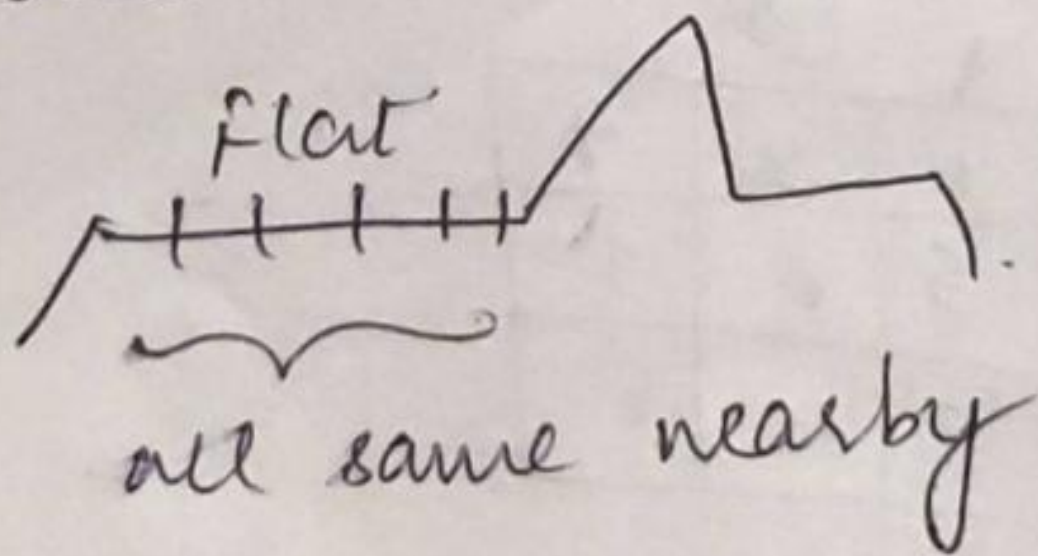 flat
all same nearby